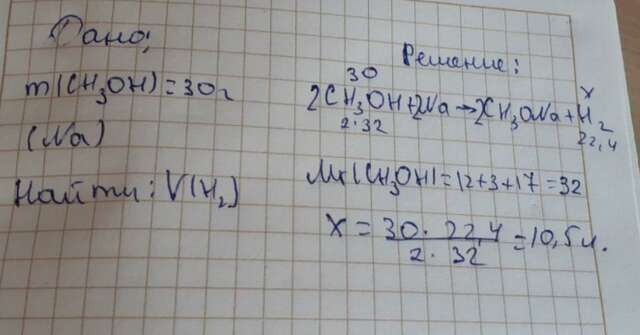 Дано;
m(CH₃OH)=30г
(Na)
Найти: V(H₂)
Решение:
30 x
2CH₃OH+2Na→2CH₃ONa+H₂
2·32 22,4
Mr(CH₃OH)=12+3+17=32
x = 30 · 22,4 / 2 · 32 = 10,5л.